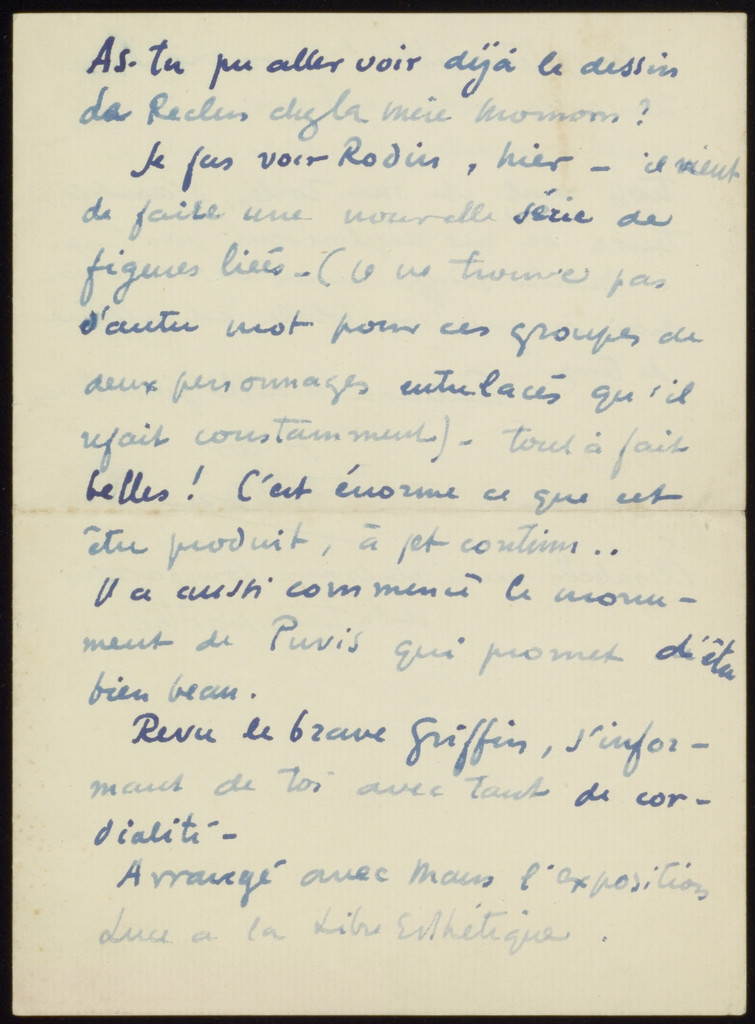 As-tu pu aller voir déjà le dessin
de Reclus chez la mère Momom?
Je fus voir Rodin, hier – il vient
de faire une nouvelle série de
figures liées – (je ne trouve pas
d'autre mot pour ces groupes de
deux personnages entrelacés qu'il
refait constamment) – tout à fait
belles! C'est énorme ce que cet
être produit, à jet continu..
Il a aussi commencé le monu-
ment de Puvis qui promet d'être
bien beau.
Revu le brave Griffin, s'infor-
mant de toi avec tant de cor-
dialité –
Arrangé avec Maus l'exposition
Luce a la Libre Esthétique.